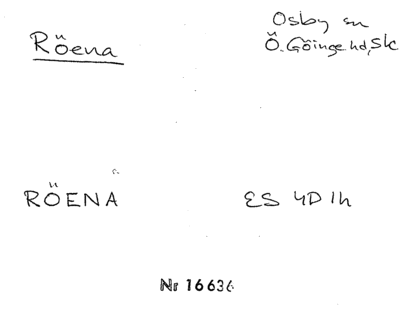 Röena
Osby sn
Ö. Göinge hd, Sk
RÖENA
ES 4D 1h
Nr 16636